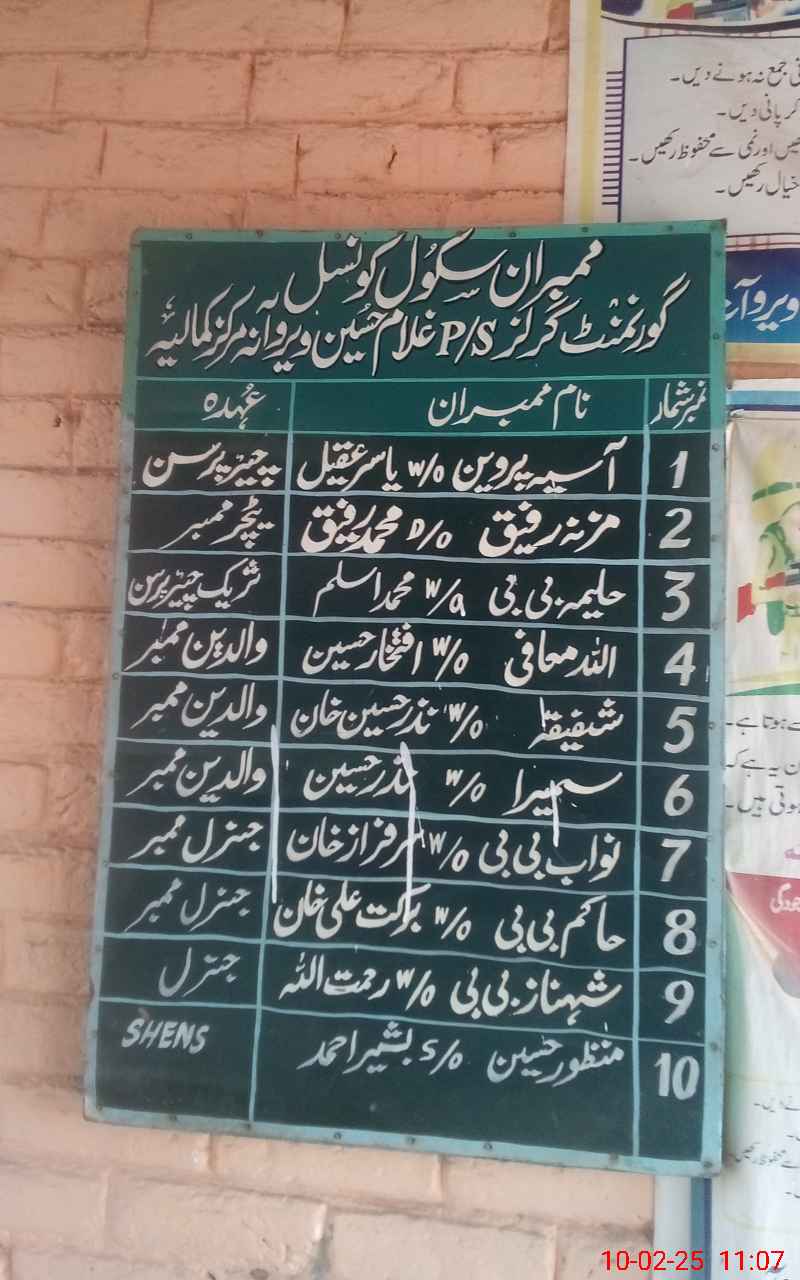 ممبران سکول کونسل
گورنمنٹ گرلز P/S غلام حسین ویروآنہ مرکز کمالیہ
نمبر شمار نام ممبران عہدہ
1 آسیہ پروین w/o یاسر عقیل چیئر پرسن
2 مزنہ رفیق D/o محمد رفیق ٹیچر ممبر
3 حلیمہ بی بی w/o محمد اسلم شریک چیئر پرسن
4 اللہ معافی w/o افتخار حسین والدین ممبر
5 شفیقہ w/o نذر حسین خان والدین ممبر
6 سمیرا w/o نذر حسین والدین ممبر
7 نواب بی بی w/o سرفراز خان جنرل ممبر
8 حاکم بی بی w/o برکت علی خان جنرل ممبر
9 شہناز بی بی w/o رحمت اللہ جنرل
10 منظور حسین S/o بشیر احمد SHENS
جمع نہ ہونے دیں۔
کر پانی دیں۔
اور نمی سے محفوظ رکھیں۔
خیال رکھیں۔
سے ہوتا ہے۔
یہ ہے کہ
ہوتی ہیں۔
10-02-25 11:07